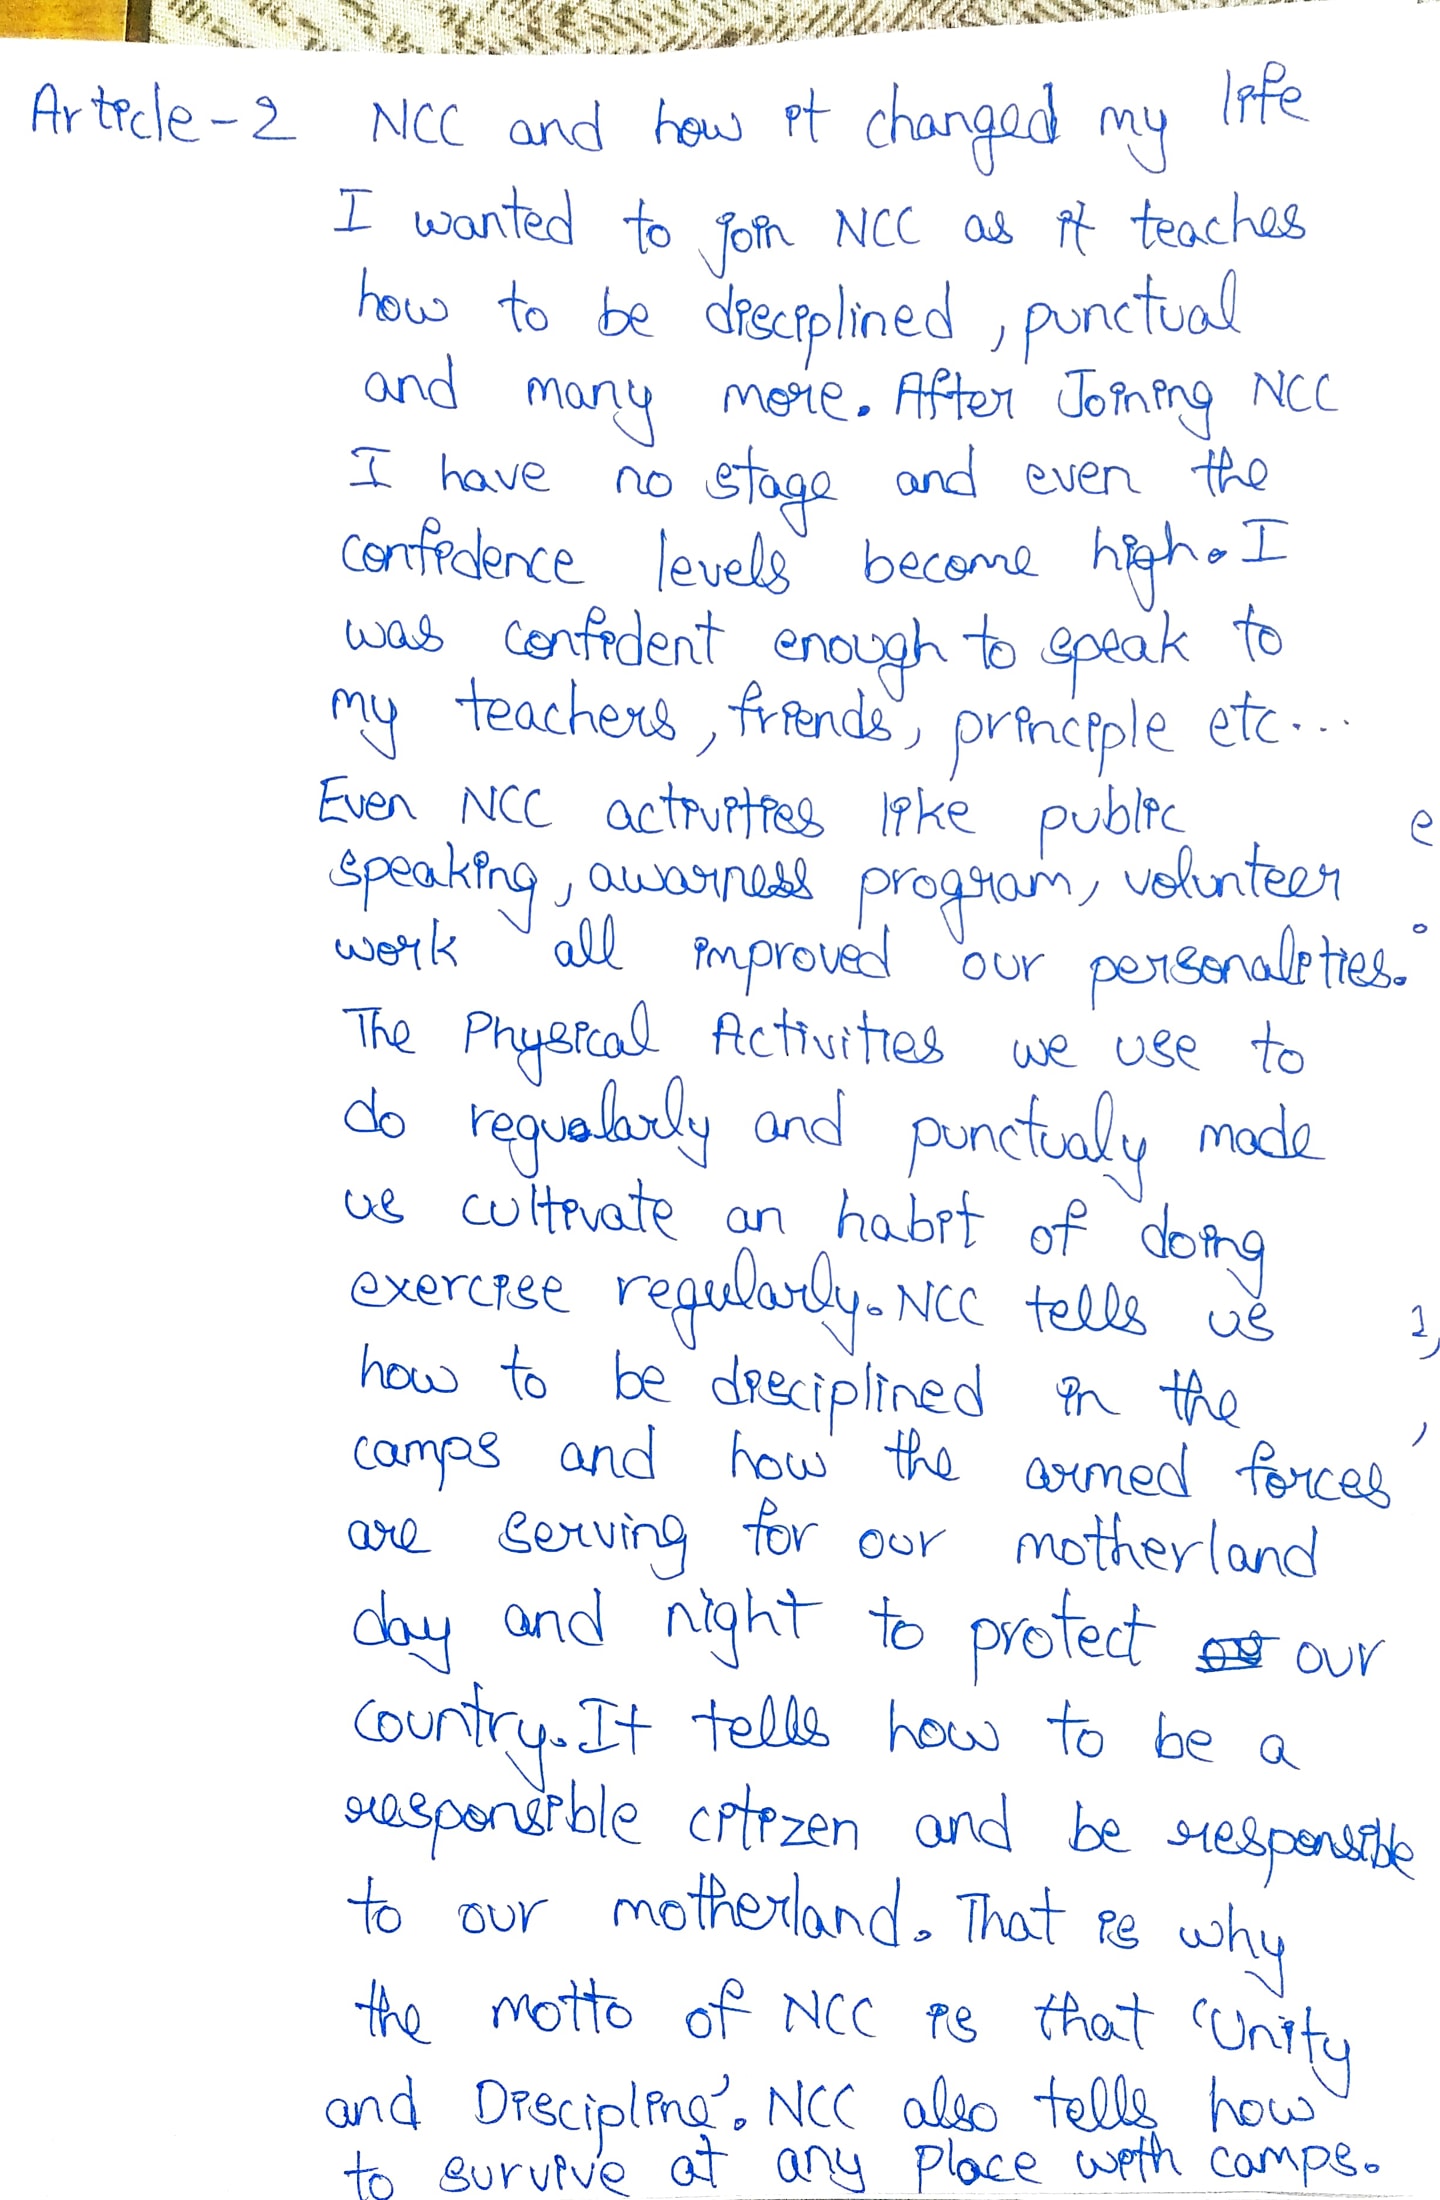 Article-2 NCC and how it changed my life
I wanted to join NCC as it teaches
how to be disciplined, punctual
and many more. After Joining NCC
I have no stage and even the
confidence levels become high. I
was confident enough to speak to
my teachers, friends, principle etc...
Even NCC activities like public
speaking, awarness program, volunteer
work all improved our personalities.
The Physical Activities we use to
do regualarly and punctualy made
us cultivate an habit of doing
exercise regularly. NCC tells us
how to be disciplined in the
camps and how the armed forces
are serving for our motherland
day and night to protect our
country. It tells how to be a
responsible citizen and be responsible
to our motherland. That is why
the motto of NCC is that 'Unity
and Discipline'. NCC also tells how
to survive at any place with camps.